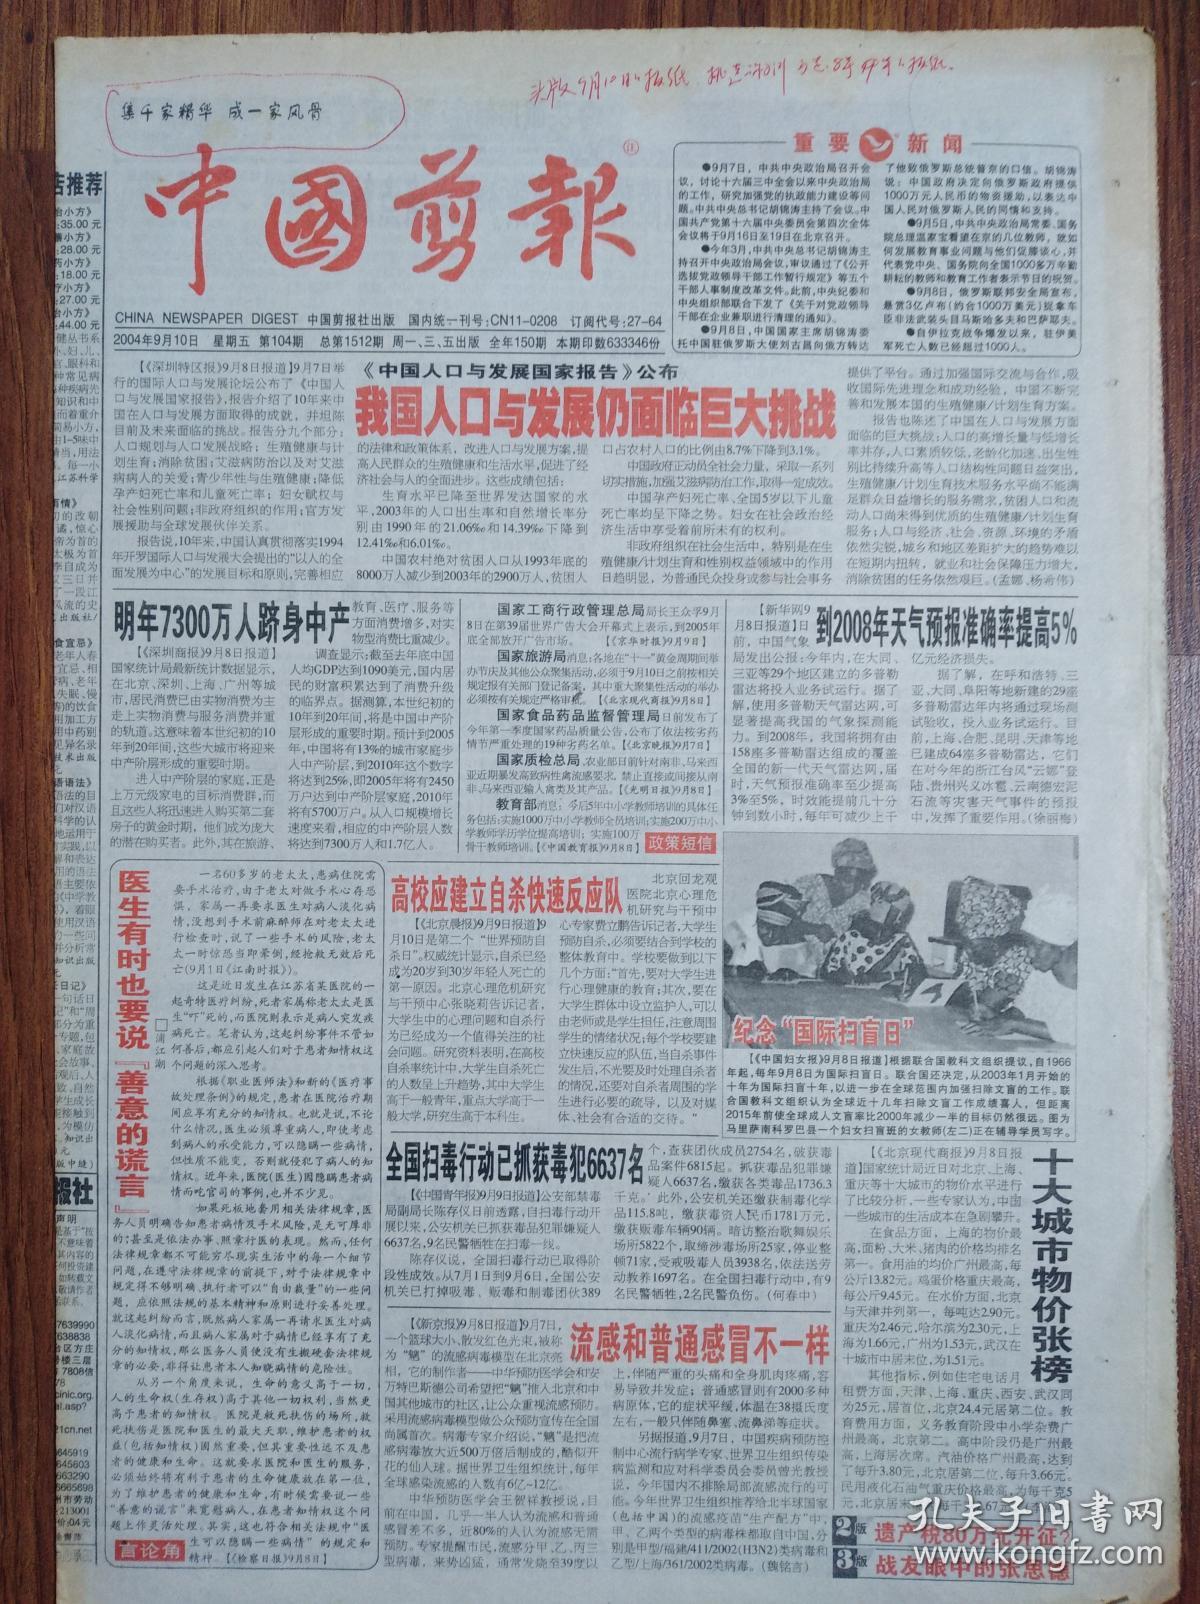 集千家精华 成一家风骨
中國剪報
CHINA NEWSPAPER DIGEST 中国剪报社出版 国内统一刊号:CN11-0208 订阅代号:27-64
2004年9月10日 星期五 第104期 总第1512期 周一、三、五出版 全年150期 本期印数633346份
重要新闻
●9月7日，中共中央政治局召开会
议，讨论十六届三中全会以来中央政治局
的工作，研究加强党的执政能力建设等问
题。中共中央总书记胡锦涛主持了会议。中
国共产党第十六届中央委员会第四次全体
会议将于9月16日至19日在北京召开。
●今年3月，中共中央总书记胡锦涛主
持召开中央政治局会议，审议通过了《公开
选拔党政领导干部工作暂行规定》等五个
干部人事制度改革文件。此前，中央纪委和
中央组织部联合下发了《关于对党政领导
干部在企业兼职进行清理的通知》。
●9月8日，中国国家主席胡锦涛委
托中国驻俄罗斯大使刘古昌向俄方转达
了他致俄罗斯总统普京的口信。胡锦涛
说：中国政府决定向俄罗斯政府提供
1000万元人民币的物资援助，以表达中
国人民对俄罗斯人民的同情和支持。
●9月5日，中共中央政治局常委、国务
院总理温家宝看望在京的几位教师，就如
何发展教育事业问题与他们促膝谈心，并
代表党中央、国务院向全国1000多万辛勤
耕耘的教师和教育工作者表示节日的祝贺。
●9月8日，俄罗斯联邦安全局宣布，
悬赏3亿卢布(约合1000万美元)捉拿车
臣非法武装头目马斯哈多夫和巴萨耶夫。
●自伊拉克战争爆发以来，驻伊美
军死亡人数已经超过1000人。
《中国人口与发展国家报告》公布
我国人口与发展仍面临巨大挑战
【《深圳特区报》9月8日报道】9月7日举
行的国际人口与发展论坛公布了《中国人
口与发展国家报告》，报告介绍了10年来中
国在人口与发展方面取得的成就，并坦陈
目前及未来面临的挑战。报告分九个部分：
人口规划与人口发展战略；生殖健康与计
划生育；消除贫困；艾滋病防治以及对艾滋
病病人的关爱；青少年性与生殖健康；降低
孕产妇死亡率和儿童死亡率；妇女赋权与
社会性别问题；非政府组织的作用；官方发
展援助与全球发展伙伴关系。
报告说，10年来，中国认真贯彻落实1994
年开罗国际人口与发展大会提出的“以人的全
面发展为中心”的发展目标和原则，完善相应
的法律和政策体系，改进人口与发展方案，提
高人民群众的生殖健康和生活水平，促进了经
济社会与人的全面进步。这些成绩包括：
生育水平已降至世界发达国家的水
平，2003年的人口出生率和自然增长率分
别由1990年的21.06‰和14.39‰下降到
12.41‰和6.01‰。
中国农村绝对贫困人口从1993年底的
8000万人减少到2003年的2900万人，贫困人
口占农村人口的比例由8.7%下降到3.1%。
中国政府正动员全社会力量，采取一系列
切实措施，加强艾滋病防治工作，取得一定成效。
中国孕产妇死亡率、全国5岁以下儿童
死亡率均呈下降之势。妇女在社会政治经
济生活中享受着前所未有的权利。
非政府组织在社会生活中，特别是在生
殖健康/计划生育和性别权益领域中的作用
日趋明显，为普通民众投身或参与社会事务
提供了平台。通过加强国际交流与合作，吸
收国际先进理念和成功经验，中国不断完
善和发展本国的生殖健康/计划生育方案。
报告也陈述了中国在人口与发展方面
面临的巨大挑战：人口的高增长量与低增长
率并存，人口素质较低，老龄化加速，出生性
别比持续升高等人口结构性问题日益突出，
生殖健康/计划生育技术服务水平尚不能满
足群众日益增长的服务需求，贫困人口和流
动人口尚未得到优质的生殖健康/计划生育
服务；人口与经济、社会、资源、环境的矛盾
依然尖锐，城乡和地区差距扩大的趋势难以
在短期内扭转，就业和社会保障压力增大，
消除贫困的任务依然艰巨。(孟娜、杨希伟)
明年7300万人跻身中产
【《深圳商报》9月8日报道】
国家统计局最新统计数据显示，
在北京、深圳、上海、广州等城
市，居民消费已由实物消费为主
走上实物消费与服务消费并重
的轨道。这意味着本世纪初的10
年到20年间，这些大城市将迎来
中产阶层形成的重要时期。
进入中产阶层的家庭，正是
上万元级家电的目标消费群，而
且这些人将迅速进入购买第二套
房子的黄金时期，他们成为庞大
的潜在购买者。此外，其在旅游、
教育、医疗、服务等
方面消费增多，对实
物型消费比重减少。
调查显示：截至去年底中国
人均GDP达到1090美元，国内居
民的财富积累达到了消费升级
的临界点。据测算，本世纪初的
10年到20年间，将是中国中产阶
层形成的重要时期。预计到2005
年，中国将有13%的城市家庭步
入中产阶层，到2010年这个数字
将达到25%，即2005年将有2450
万户达到中产阶层家庭，2010年
将有5700万户。从人口规模增长
速度来看，相应的中产阶层人数
将达到7300万人和1.7亿人。
国家工商行政管理总局局长王众孚9月
8日在第39届世界广告大会开幕式上表示，到2005年
底全部放开广告市场。【《京华时报》9月9日】
国家旅游局消息：各地在“十一”黄金周期间举
办节庆及其他公众聚集活动，必须于9月10日之前按相关
规定报有关部门登记备案，其中重大聚集性活动的举办
必须按有关规定严格审核。【《北京现代商报》9月8日】
国家食品药品监督管理局日前发布了
今年第一季度国家药品质量公告，公布了依法按劣药
情节严重处理的19种劣药名单。【《北京晚报》9月7日】
国家质检总局、农业部日前针对南非、马来西
亚近期暴发高致病性禽流感要求，禁止直接或间接从南
非、马来西亚输入禽类及其产品。【《光明日报》9月8日】
教育部消息：今后5年中小学教师培训的具体任
务包括：实施1000万中小学教师全员培训；实施200万中小
学教师学历学位提高培训；实施100万
骨干教师培训。【《中国教育报》9月8日】
政策短信
到2008年天气预报准确率提高5%
【新华网9
月8日报道】日
前，中国气象
局发出公报：今年内，在大同、
三亚等29个地区建立的多普勒
雷达将投入业务试运行。据了
解，使用多普勒天气雷达网，可
显著提高我国的气象探测能
力。到2008年，我国将拥有由
158座多普勒雷达组成的覆盖
全国的新一代天气雷达网，届
时，天气预报准确率至少提高
3%至5%，时效能提前几十分
钟到数小时，每年可减少上千
亿元经济损失。
据了解，在呼和浩特、三
亚、大同、阜阳等地新建的29座
多普勒雷达年内将通过现场测
试验收，投入业务试运行。目
前，上海、合肥、昆明、天津等地
已建成64座多普勒雷达，它们
在对今年的浙江台风“云娜”登
陆、贵州兴义冰雹、云南德宏泥
石流等灾害天气事件的预报
中，发挥了重要作用。(徐丽梅)
医生有时也要说『善意的谎言』
□蒲江潮
一名60多岁的老太太，患病住院需
要手术治疗，由于老太对做手术心存恐
惧，家属一再要求医生对病人淡化病
情，没想到手术前麻醉师在对老太太进
行检查时，说了一些手术的风险，老太
太一时惊恐当即晕倒，经抢救无效后死
亡(9月1日《江南时报》)。
这是近日发生在江苏省某医院的一
起奇特医疗纠纷，死者家属称老太太是医
生“吓”死的，而医院则表示是病人突发疾
病死亡。笔者认为，这起纠纷事件不管如
何善后，都应引起人们对于患者知情权这
个问题的深入思考。
根据《职业医师法》和新的《医疗事
故处理条例》的规定，患者在医院治疗期
间应享有充分的知情权。也就是说，不论
什么情况，医生必须尊重病人，即使考虑
到病人的承受能力，可以隐瞒一些病情，
但性质不能变，否则就侵犯了病人的知
情权。近年来，医院(医生)因隐瞒患者病
情而吃官司的事例，也并不少见。
如果死板地套用相关法律规章，医
务人员明确告知患者病情及手术风险，是无可厚非
的；甚至是依法办事、照章行医的表现。然而，任何
法律规章都不可能穷尽现实生活中的每一个细节
问题，在遵守法律规章的前提下，对于法律规章中
规定得不够明确、执行者可以“自由裁量”的一些问
题，应依照法规的基本精神和原则进行妥善处理。
就这起纠纷而言，既然病人家属一再请求医生对病
人淡化病情，而且病人家属对于病情已经享有了充
分的知情权，那么医务人员便没有生搬硬套法律规
章的必要，非得让患者本人知晓病情的危险性。
从另一个角度来说，生命的意义高于一切，
人的生命权(生存权)高于其他一切权利，当然更
高于患者的知情权。医院是救死扶伤的场所，救
死扶伤是医院和医生的最大天职，维护患者的权
益(包括知情权)固然重要，但其重要性远不及患
者的健康和生命。这就要求医院和医生的服务，
必须始终将有利于患者的生命健康放在第一位，
为了维护患者的健康和生命，有时候需要说一些
“善意的谎言”来宽慰病人，在患者知情权这个问
题上作灵活处理。其实，这也符合相关法规中“医
生可以隐瞒一些病情”的规定和
精神。【《检察日报》9月8日】
言论角
高校应建立自杀快速反应队
【《北京晨报》9月9日报道】9
月10日是第二个“世界预防自
杀日”。权威统计显示，自杀已经
成为20岁到30岁年轻人死亡的
第一原因。北京心理危机研究
与干预中心张晓莉告诉记者，
大学生中的心理问题和自杀行
为已经成为一个值得关注的社
会问题。研究资料表明，在高校
自杀率统计中，大学生自杀死亡
的人数呈上升趋势，其中大学生
高于一般青年，重点大学高于一
般大学，研究生高于本科生。
北京回龙观
医院北京心理危
机研究与干预中
心专家费立鹏告诉记者，大学生
预防自杀，必须要结合到学校的
整体教育中。学校要做到以下
几个方面：“首先，要对大学生进
行心理健康的教育；其次，要在
大学生群体中设立监护人，可以
由老师或是学生担任，注意周围
学生的情绪状况；每个学校要建
立快速反应的队伍，当自杀事件
发生后，不光要及时处理自杀者
的情况，还要对自杀者周围的学
生进行必要的疏导，以及对媒
体、社会有合适的交待。”
纪念“国际扫盲日”
【《中国妇女报》9月8日报道】根据联合国教科文组织提议，自1966
年起，每年9月8日为国际扫盲日。联合国还决定，从2003年1月开始的
十年为国际扫盲十年，以进一步在全球范围内加强扫除文盲的工作。联
合国教科文组织认为全球近十几年扫除文盲工作成绩喜人，但距离
2015年前使全球成人文盲率比2000年减少一半的目标仍然很远。图为
马里萨南科罗巴县一个妇女扫盲班的女教师(左二)正在辅导学员写字。
全国扫毒行动已抓获毒犯6637名
【《中国青年报》9月9日报道】公安部禁毒
局副局长陈存仪日前透露，自扫毒行动开
展以来，公安机关已抓获毒品犯罪嫌疑人
6637名，9名民警牺牲在扫毒一线。
陈存仪说，全国扫毒行动已取得阶
段性成效。从7月1日到9月6日，全国公安
机关已打掉吸毒、贩毒和制毒团伙389
个，查获团伙成员2754名，破获毒
品案件6815起。抓获毒品犯罪嫌
疑人6637名，缴获各类毒品1736.3
千克。此外，公安机关还缴获制毒化学
品115.8吨，缴获毒资人民币1781万元，
缴获贩毒车辆90辆。暗访整治歌舞娱乐
场所5822个，取缔涉毒场所25家，停业整
顿71家，受戒吸毒人员3938名，依法送劳
动教养1697名。在全国扫毒行动中，有9
名民警牺牲，2名民警负伤。(何春中)
流感和普通感冒不一样
【《新京报》9月8日报道】9月7日，
一个篮球大小、散发红色光束，被称
为“魑”的流感病毒模型在北京亮
相，它的制作者——中华预防医学会和安
万特巴斯德公司希望把“魑”推入北京和中
国其他城市的社区，让公众重视流感预防。
采用流感病毒模型做公众预防宣传在全国
尚属首次。病毒专家介绍说，“魑”是把流
感病毒放大近500万倍后制成的，酷似开
花的仙人球。据世界卫生组织统计，每年
全球感染流感的人数有6亿~12亿。
中华预防医学会王撷祥教授说，目
前在中国，几乎一半人认为流感和普通
感冒差不多，近80%的人认为流感无需
预防。专家提醒市民，流感分甲、乙、丙三
型病毒，来势凶猛，通常发烧至39度以
上，伴随严重的头痛和全身肌肉疼痛，容
易导致并发症；普通感冒则有2000多种
病原体，它的症状平缓，体温在38摄氏度
左右，一般只伴随鼻塞、流鼻涕等症状。
另据报道，9月7日，中国疾病预防控
制中心流行病学专家、世界卫生组织传染
病监测和应对科学委员会委员曾光教授
说，今年国内不排除局部流感流行的可
能。今年世界卫生组织推荐给北半球国家
(包括中国)的流感疫苗“生产配方”中，
甲、乙两个类型的病毒株都取自中国，分
别是甲型/福建/411/2002(H3N2)类病毒和
乙型/上海/361/2002类病毒。(魏铭言)
十大城市物价张榜
【《北京现代商报》9月8日报
道】国家统计局近日对北京、上海、
重庆等十大城市的物价水平进行
了比较分析，一些专家认为，中国
一些城市的生活成本在急剧攀升。
在食品方面，上海的物价最
高，面粉、大米、猪肉的价格均排名
第一。食用油的均价广州最高，每
公斤13.82元。鸡蛋价格重庆最高，
每公斤9.45元。在水价方面，北京
与天津并列第一，每吨达2.90元。
重庆为2.46元，哈尔滨为2.30元，上
海为1.66元，广州为1.53元，武汉在
十城市中居末位，为1.51元。
其他指标，例如住宅电话月
租费方面，天津、上海、重庆、西安、武汉同
为25元，居首位，北京24.4元居第二位。教
育费用方面，义务教育阶段中小学杂费广
州最高，北京第二。高中阶段仍是广州最
高，上海居次席。汽油价格广州最高，达到
了每升3.80元，北京居第二位，每升3.66元。
民用液化石油气重庆价格最高，为每千克5
2版 遗产税80万元开征？
3版 战友眼中的张思德
孔夫子旧书网
www.kongfz.com